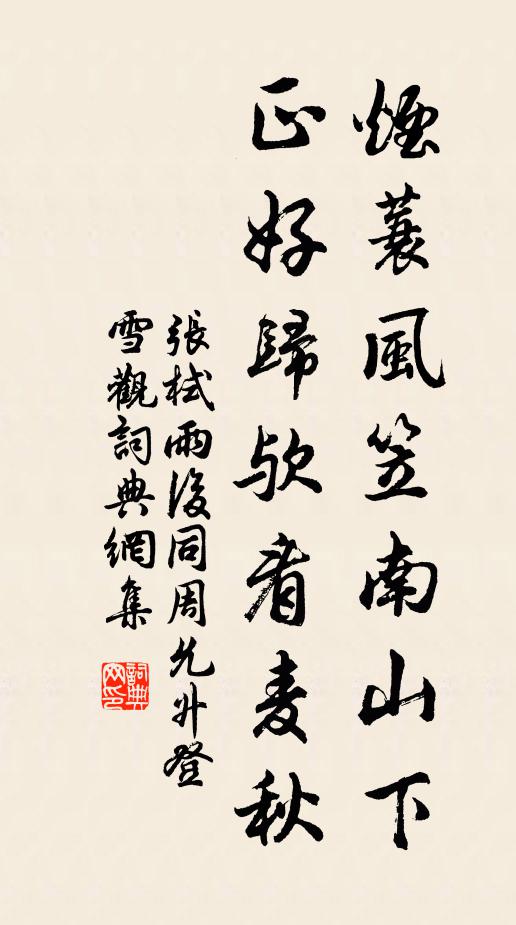 煙蓑風笠南山下
正好歸欤看麦秋
張栻雨後同周允升登
雪觀詞典網集
詞典网印